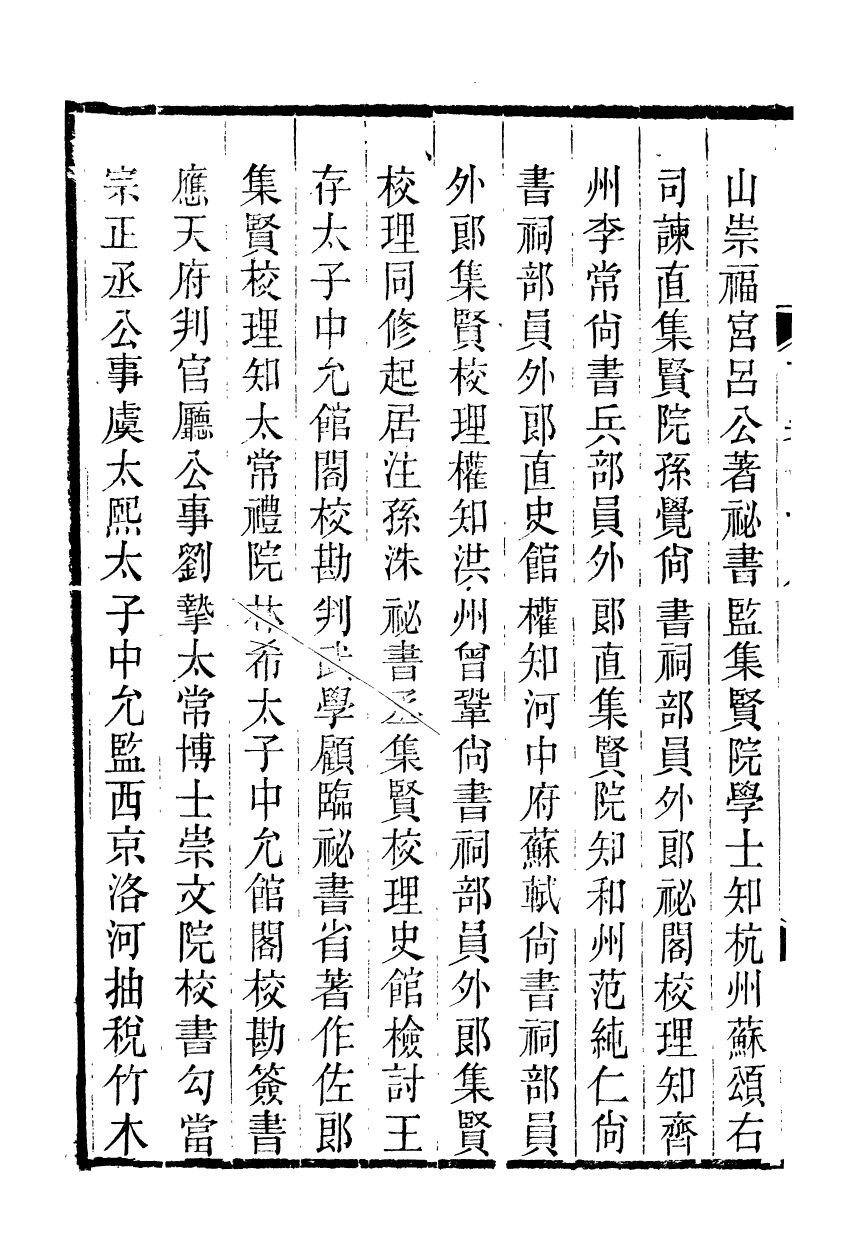 山崇福宮呂公著祕書監集賢院學士知杭州蘇頌右
司諫直集賢院孫覺尙書祠部員外郞祕閣校理知齊
州李常尙書兵部員外郞直集賢院知和州范純仁尙
書祠部員外郞直史館權知河中府蘇軾尙書祠部員
外郞集賢校理權知洪州曾鞏尙書祠部員外郞集賢
校理同修起居注孫洙祕書丞集賢校理史館檢討王
存太子中允館閣校勘判武學顧臨祕書省著作佐郞
集賢校理知太常禮院林希太子中允館閣校勘簽書
應天府判官廳公事劉摯太常博士崇文院校書勾當
宗正丞公事虞太熙太子中允監西京洛河抽稅竹木